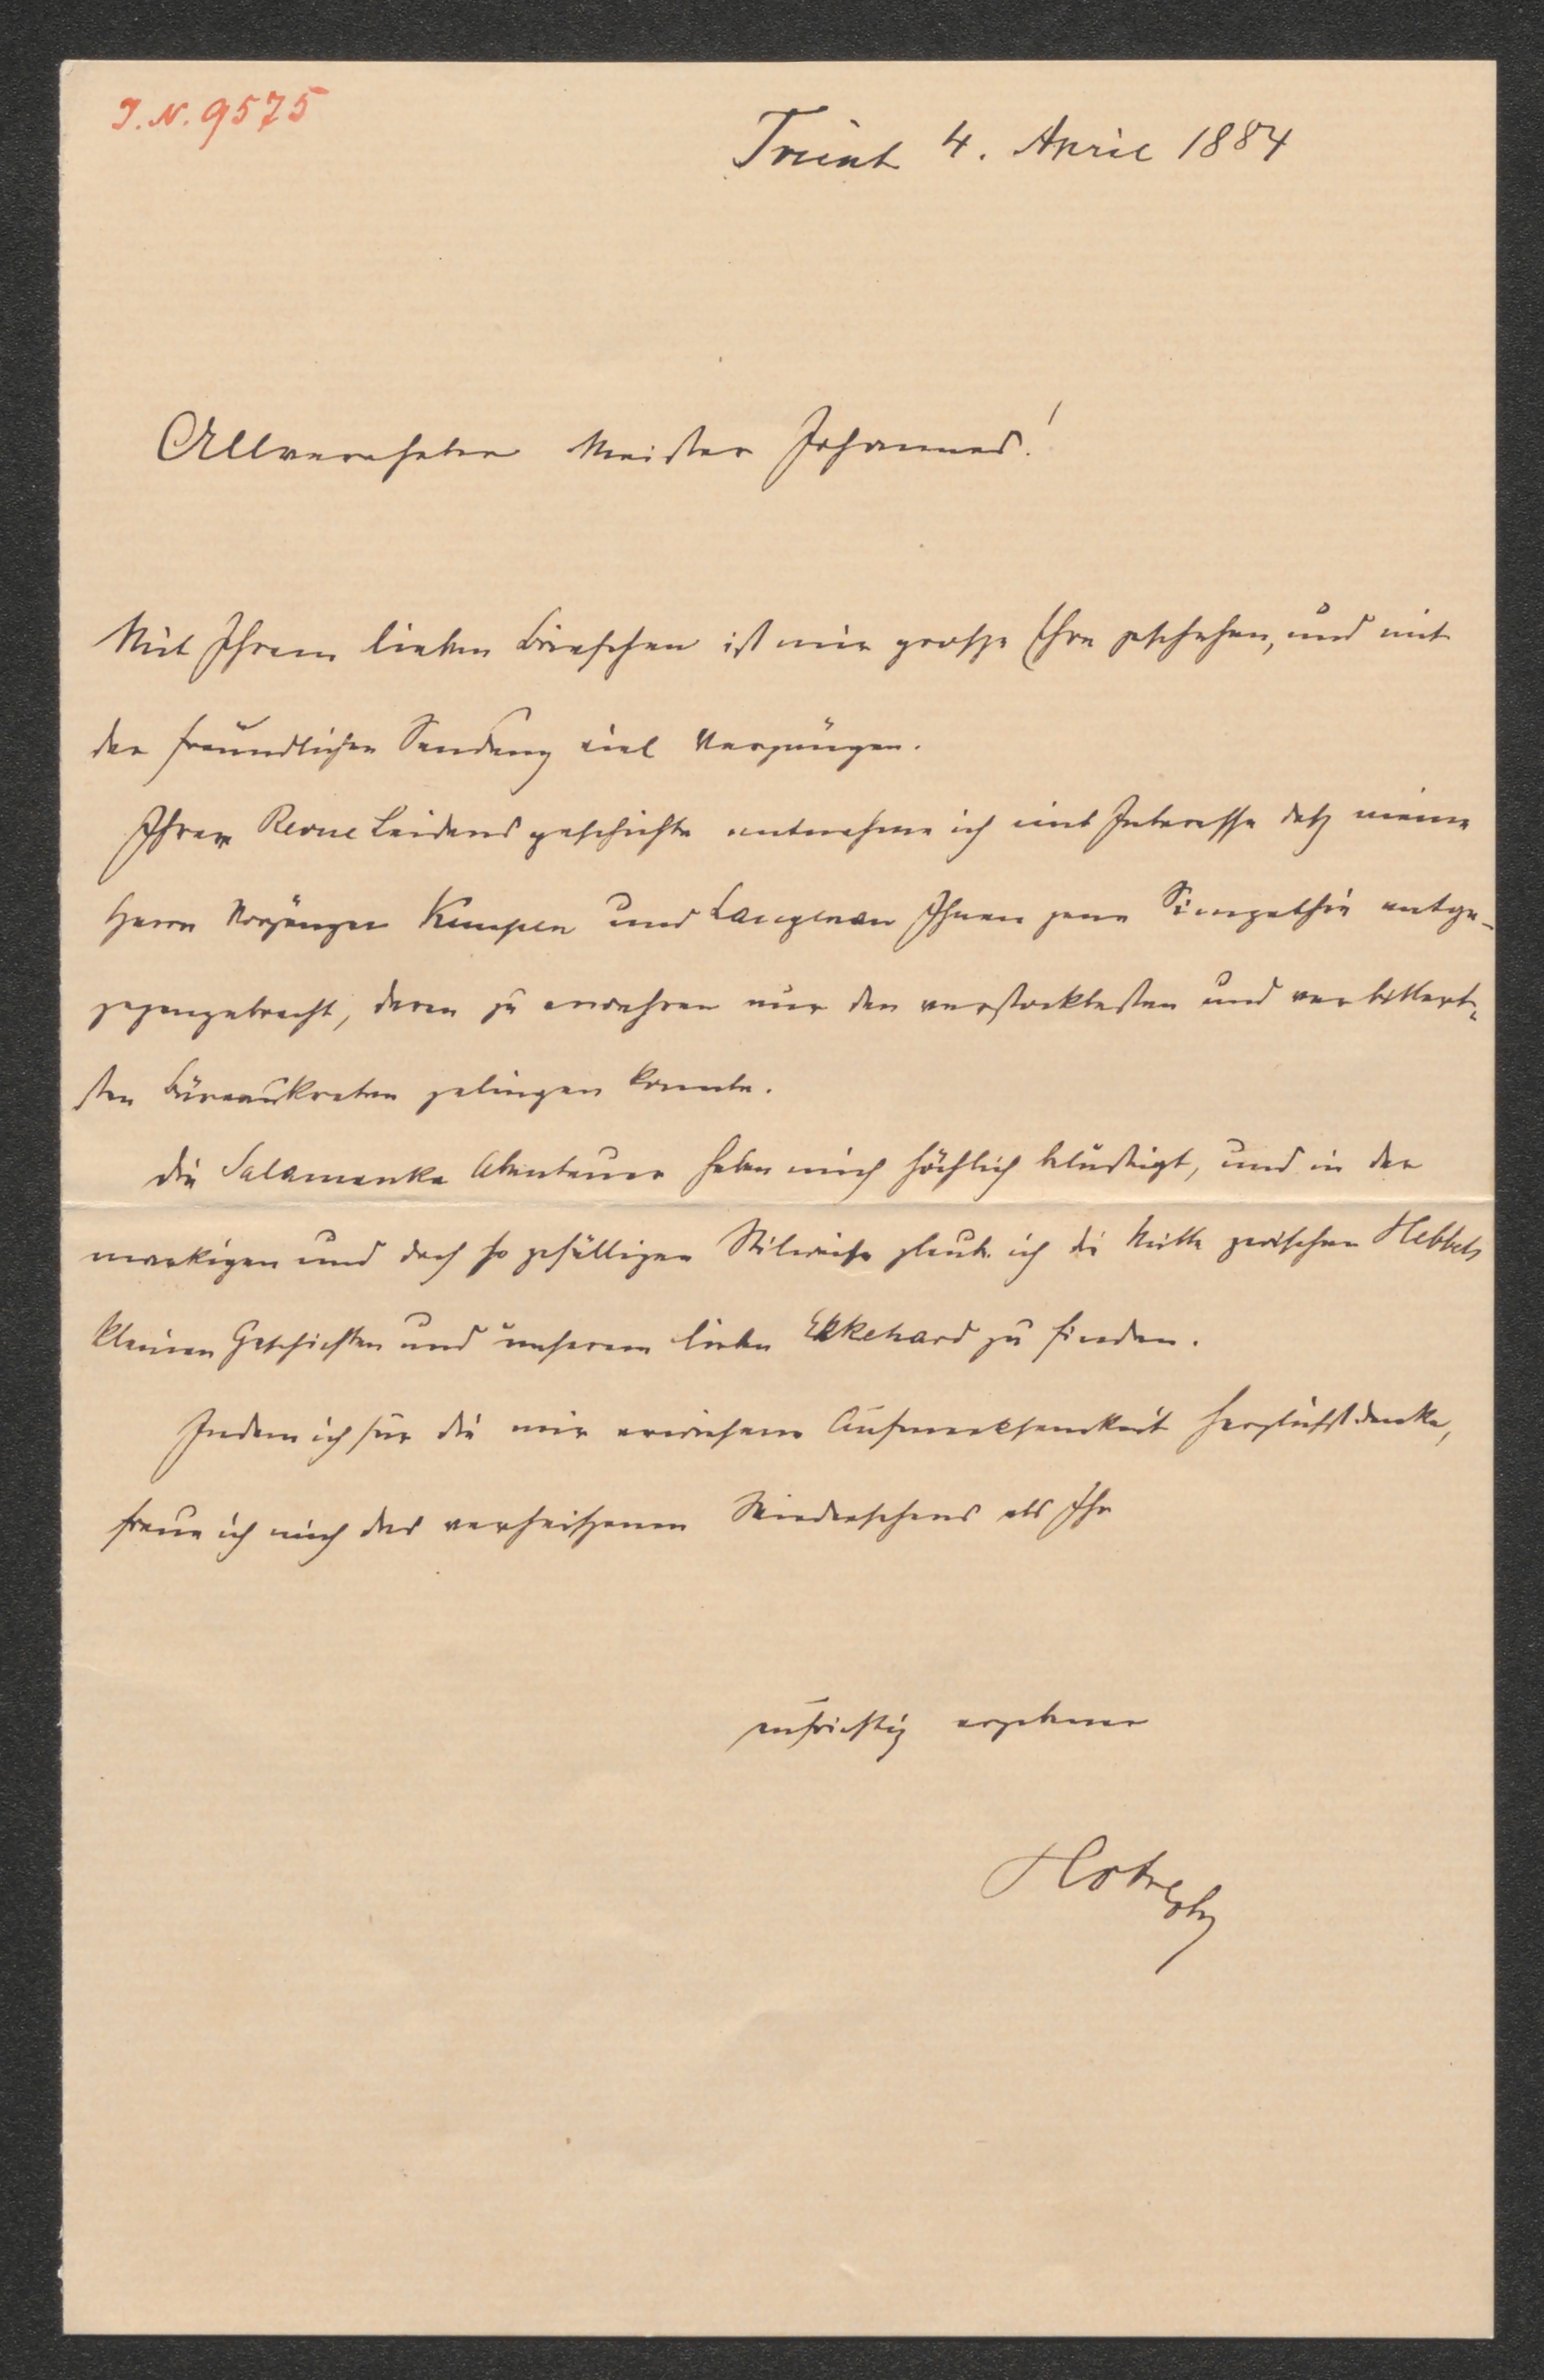 I. N. 9575
Trient 4. April 1884
Allverehrter Meister Johannes!
Mit Ihrem lieben Briefchen ist mir große Ehre geschehen, und mit
der freundlichen Sendung viel Vergnügen.
Ihrer Revue Leidensgeschichte entnehme ich mit Interesse daß meine
Herrn Vorgänger Kempen und Ihnen jene Simpathie entge-
gegengebracht, deren zu erwehren nur den verstocktesten und verbittert-
sten Büreaukraten gelingen konnte.
Die Salamanka Abenteuer haben mich höchlich belustigt, und in der
markigen und doch so gefälligen Stilweise glaub ich die Mitte zwischen Hebbels
kleinen Geschichten und unserem lieben Ekkehard zu finden.
Indem ich für die mir erwiesene Aufmerksamkeit herzlichst danke,
freue ich mich des verheißenen Wiedersehens als Ihr
aufrichtig ergebener